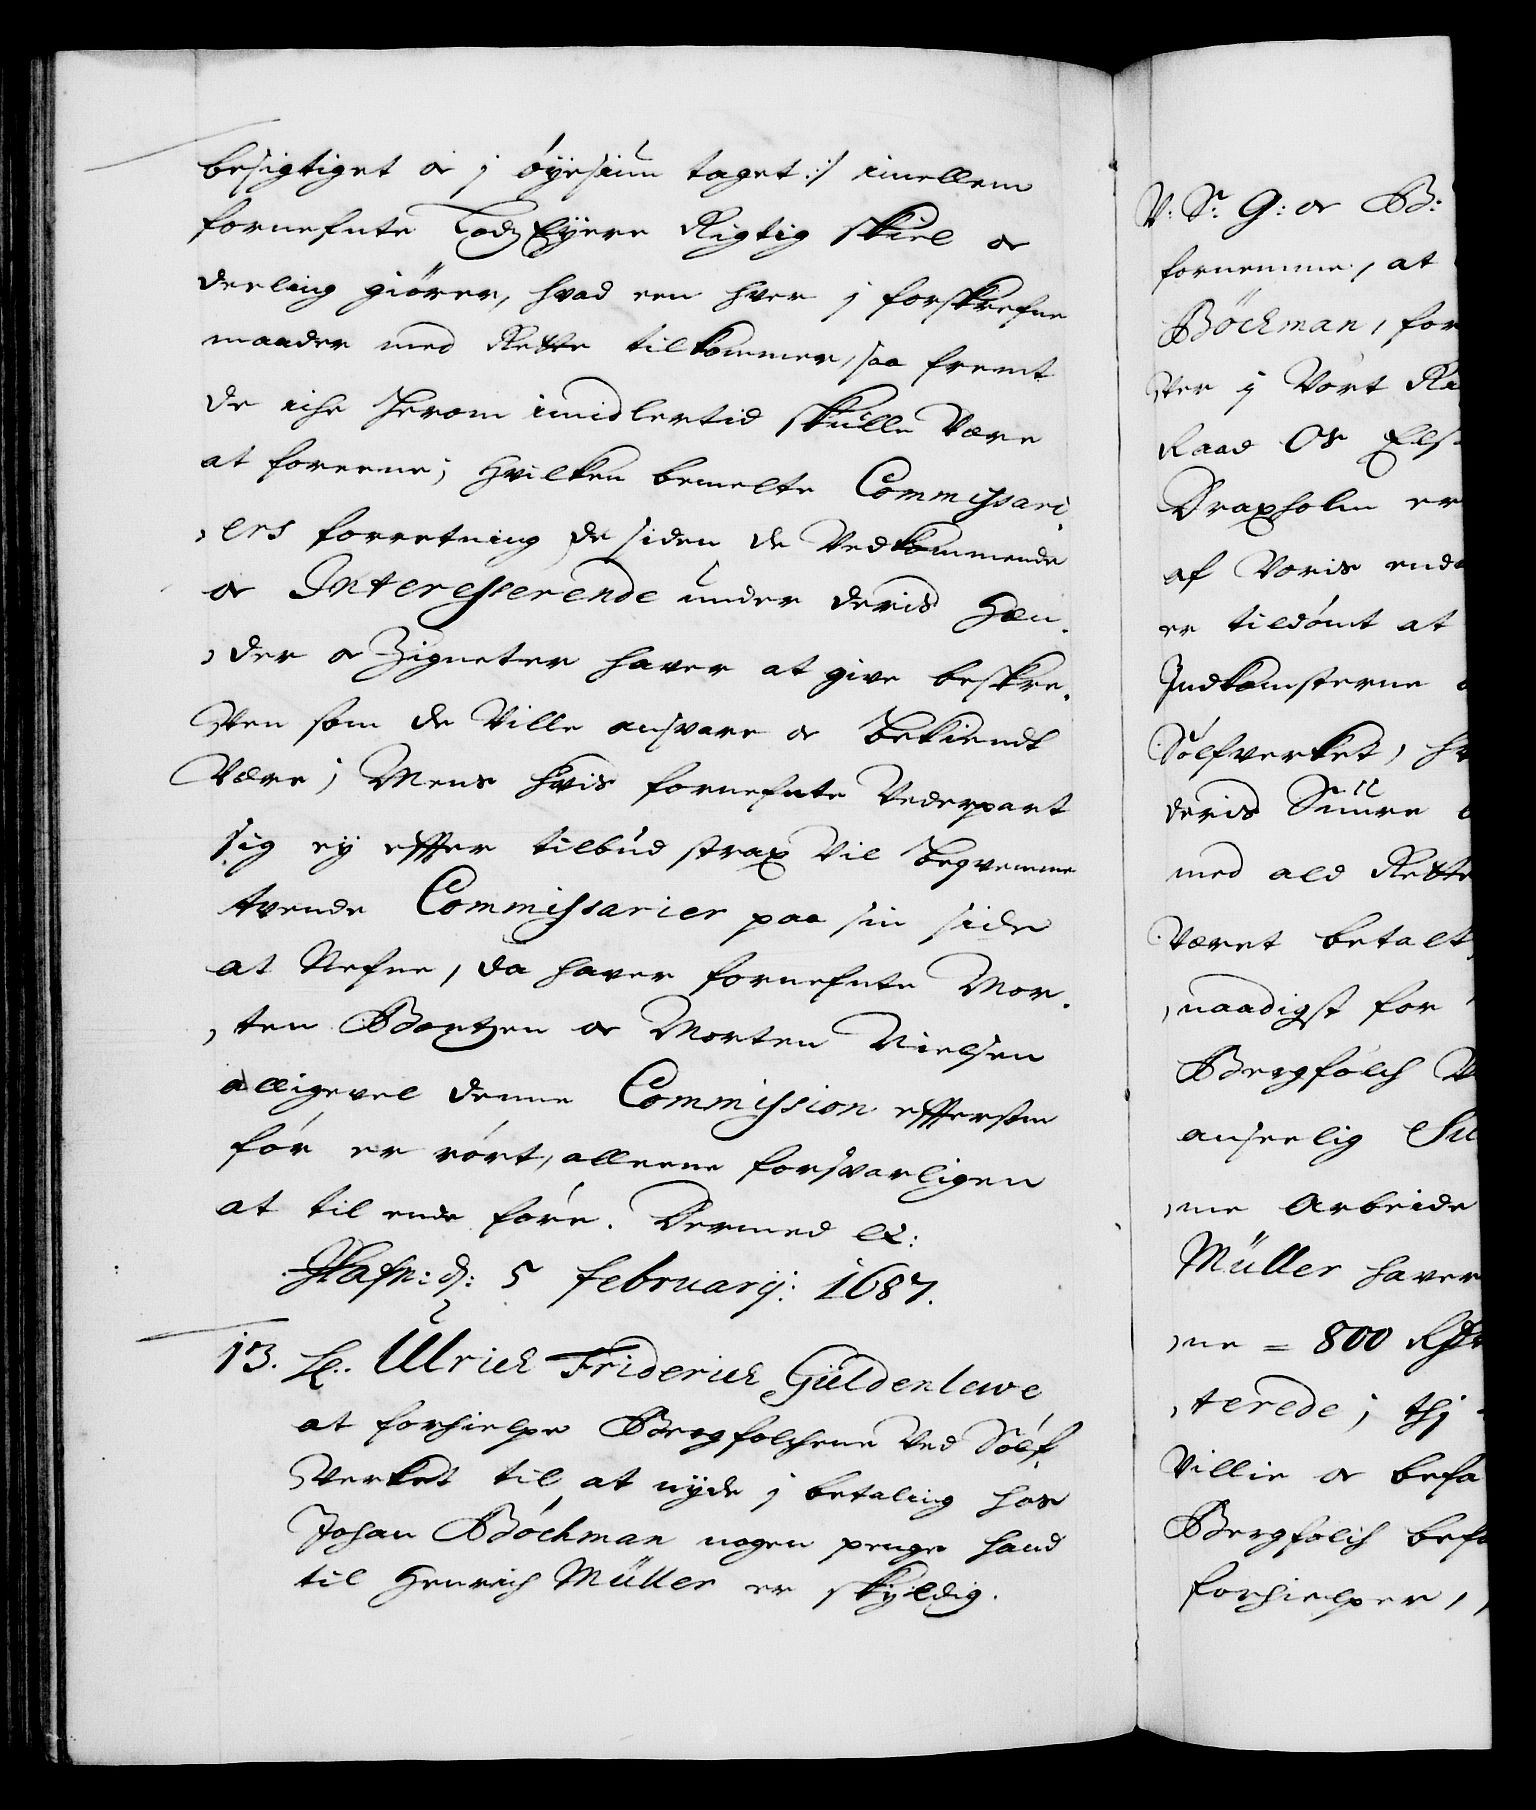 besigtiget oc j öÿesiun taget :/ imellem
fornefnte Lodz Eÿere Rigtig Skiel oc
deeling giörer, hvad een hver j forskrefne
maader med Rette tilkommer, saa fremt
de iche herom imidlertid skulle Være
at foreene; Hvilken bemelte Commissari,
,ers forretning de siden de Vedkommende
oc Interesserende under deris Hæn,
,der oc Zigneter haver at give beskre,
,ven som de Ville ansvare oc bekiendt
Være; Mens hvis fornefnte Vederpart
sig eÿ effter tilbud strax Vil beqvemme
tvende Commissarier paa sin side
at Nefne, da haver fornefnte Mor,
,ten Bartzen oc Morten Nielsen
alligevel denne Commission effersom
för er rört, alleene forsvarligen
at til ende före. Dermed etc:
Hafn: d: 5 februarij: 1687.
13. Ulrich Friderich Güldenlewe
at forhielpe Bergfolchene Ved Sölf,
,verket til at nÿde j betaling hos
Johan Böchman nogen penge hand
til Henrich Müller er skÿldig.
V: Sr: G: oc B:
fornemme, at
Böchman, for
ster j Vort Ra
Raad Os Els
Draxholm er
af Voris end
er tildömt at
Indkomsterne
Sölfverket, h
deris Suure
med ald Rette
Været betalt,
,naadigst for
Bergfolch V
anseelig Su
,me Arbeide
Müller haver
,ne = 800 Rdr
,terede; thj
Villie oc befa
Bergfolch bef
forhielper,